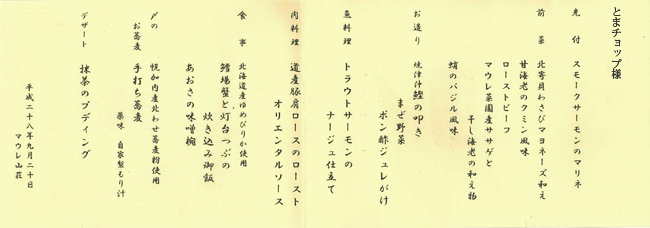 とまチョップ様
先付 スモークサーモンのマリネ
前菜 北寄貝わさびマヨネーズ和え
甘海老のクミン風味
ローストビーフ
マウレ菜園産ササゲと
干し海老の和え物
蛸のバジル風味
お造り 焼津汁鰹の叩き
まぜ野菜
ポン酢ジュレがけ
魚料理 トラウトサーモンの
ナージュ仕立て
肉料理 道産豚肩ロースのロースト
オリエンタルソース
食事 北海道産ゆめぴりか使用
鱈場蟹と灯台つぶの
炊き込み御飯
あおさの味噌椀
〆の 幌加内産北わせ蕎麦粉使用
お蕎麦 手打ち蕎麦
薬味 自家製もり汁
デザート 抹茶のプディング
平成二十八年九月二十日
マウレ山荘